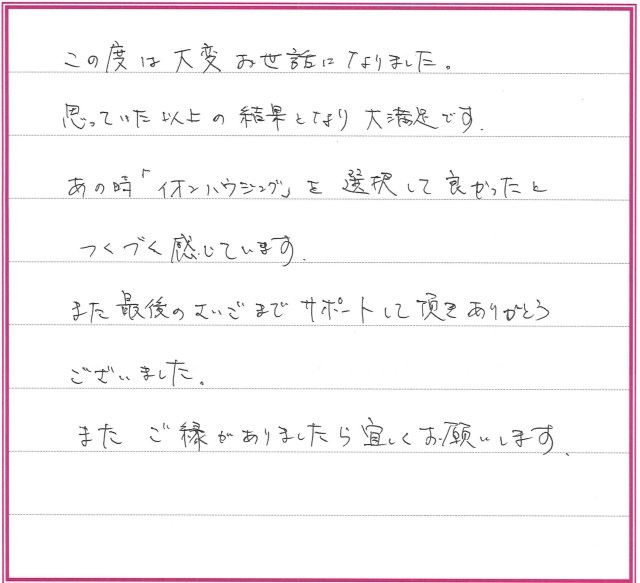 この度は大変お世話になりました。
思っていた以上の結果となり大満足です.
あの時「イオンハウジング」を選択して良かったと
つくづく感じています.
また最後のさいごまでサポートして頂きありがとう
ございました。
またご縁がありましたら宜しくお願いします.